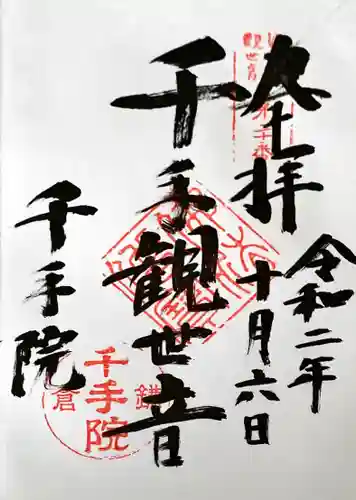 奉拝
令和二年
十月六日
千手観世音
千手院
千手院
鎌倉